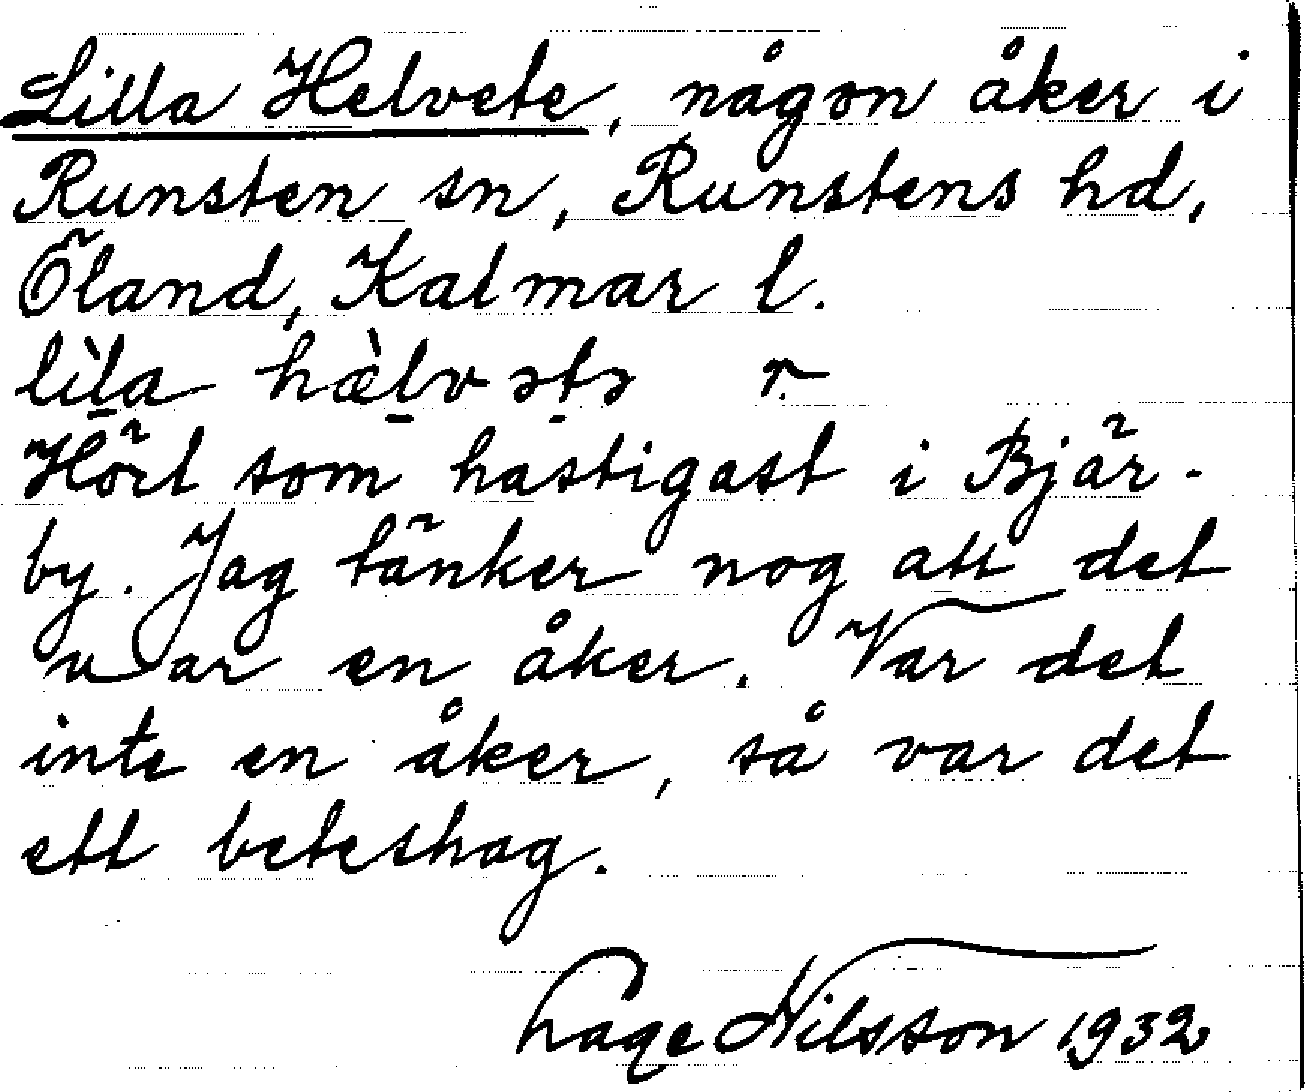 Lilla Helvete, någon åker i
Runsten sn, Runstens hd,
Öland, Kalmar l.
lìla hæ̀lvətə r.
Hört som hastigast i Bjär-
by. Jag tänker nog att det
var en åker. Var det
inte en åker, så var det
ett beteshag.
Lage Nilsson 1932